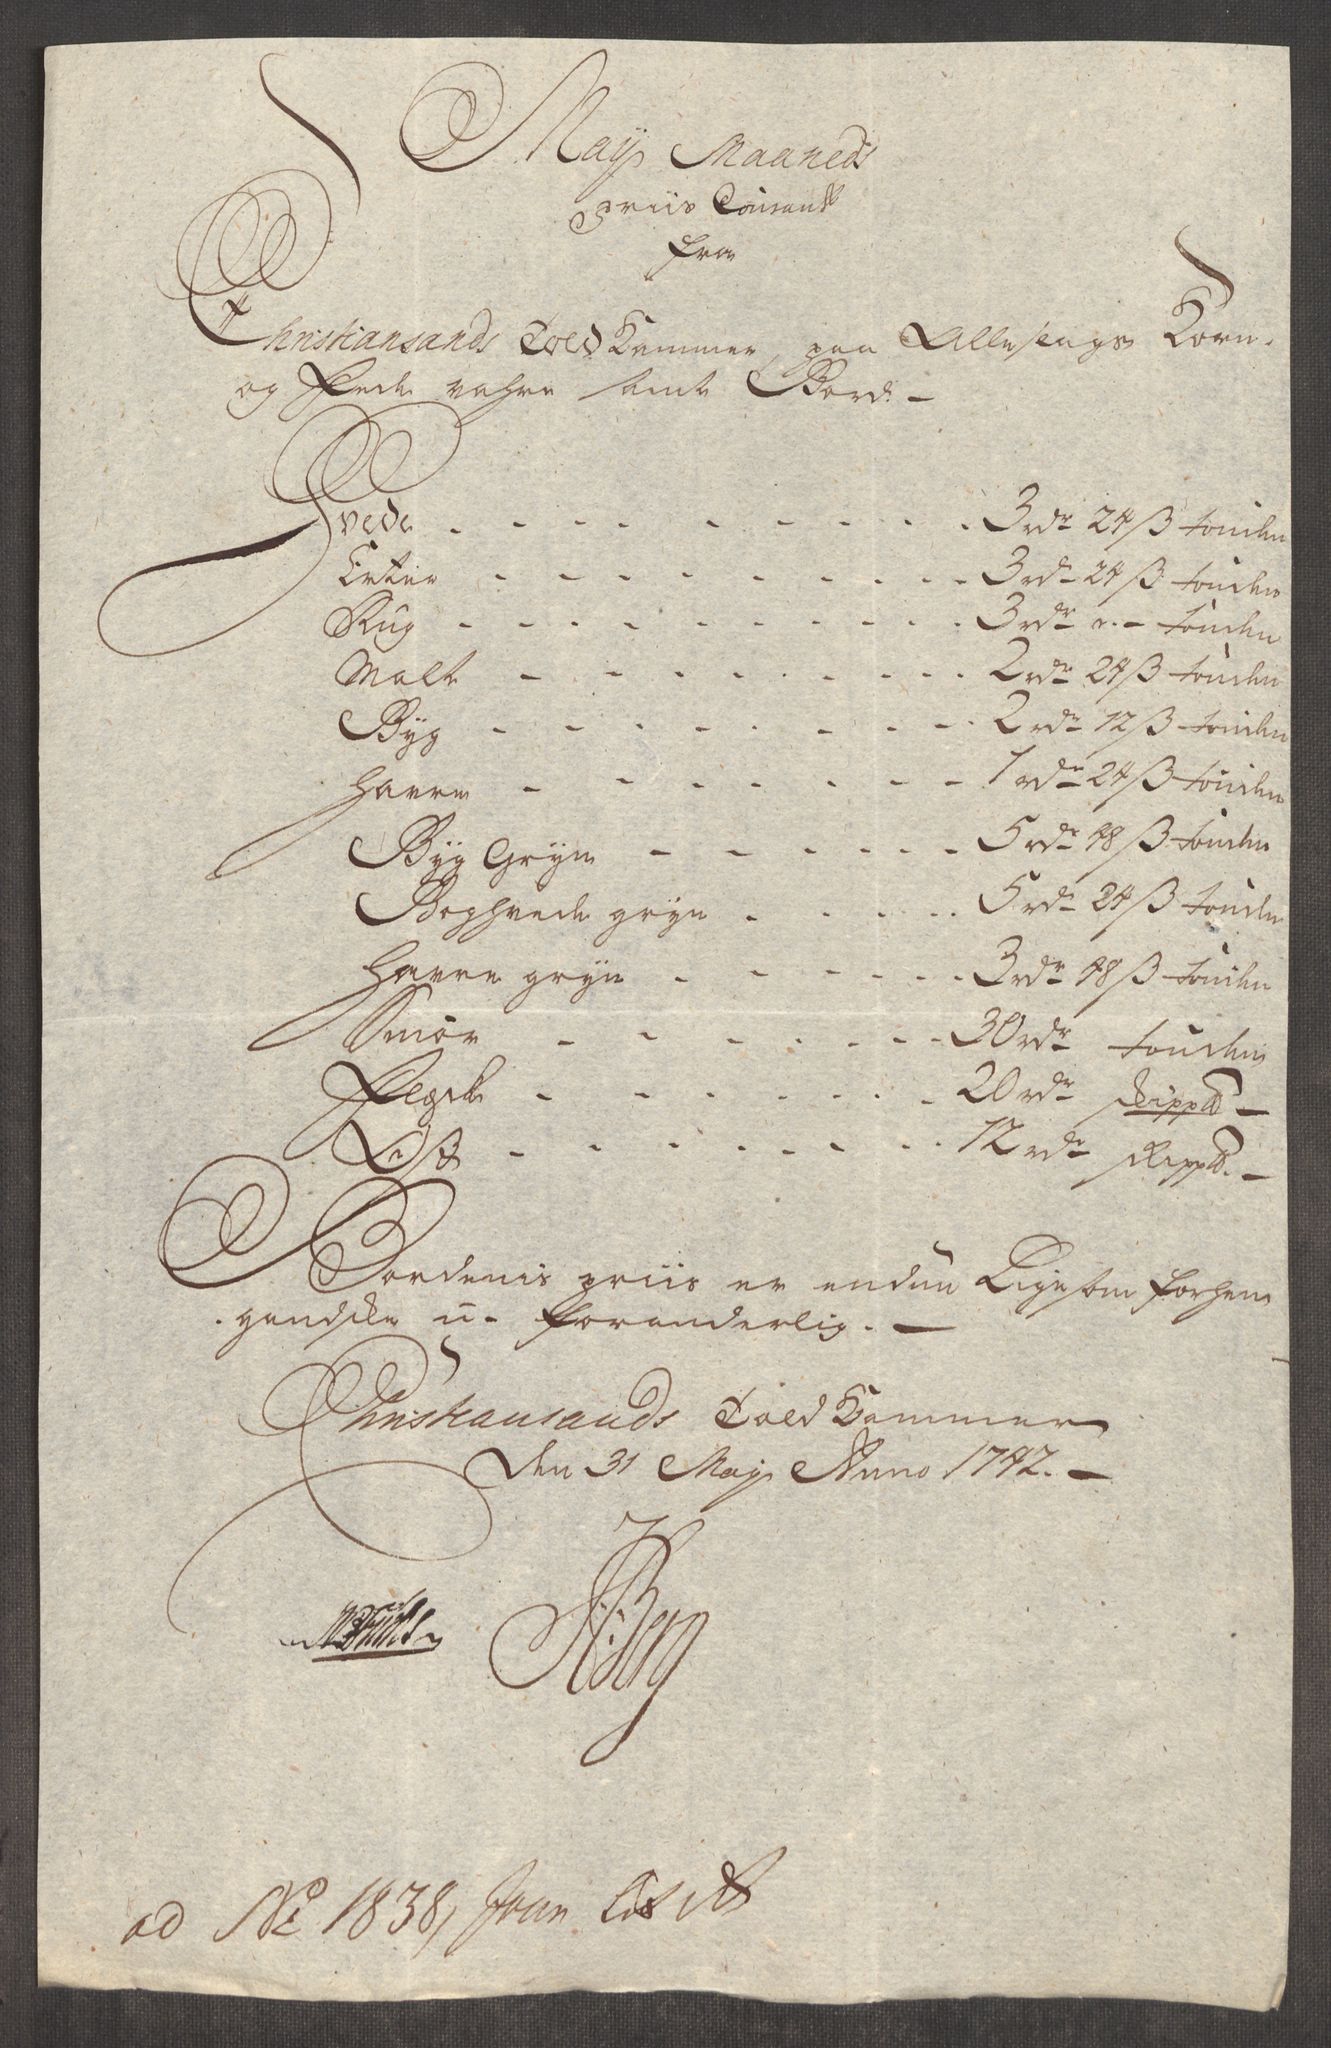 Maÿ Maaneds
priis Courant
fra
Christiansands Told Kammer, paa Alleslags Korn-
og fede vahre samt Bord. -
Hvede - - - 3 rdr 24 ß tønden
Erter - - - 3 rdr 24 ß tønden
Rúg - - - 3 rdr " - tønden
Malt - - - 2 rdr 24 ß tønden
Bÿg - - - 2 rdr 12 ß tønden
Hafre - - - 1 rdr 24 ß tønden
Bÿg Grÿn - - - 5 rdr 48 ß tønden
Boghvede grÿn - - - 5 rdr 24 ß tønden
Hafre grÿn - - - 3 rdr 48 ß tønden
Smør - - - 30 rdr tønden
Flesk - - - 20 rdr skipp℔ -
Ost - - - 12 rdr skipp℔. -
Bordenis priis er endnu Ligesom forhen
gandske u-foranderlig. -
Christiansands Told Kammer
den 31 Maÿ Anno 1742. -
Berg
ad No 1838,